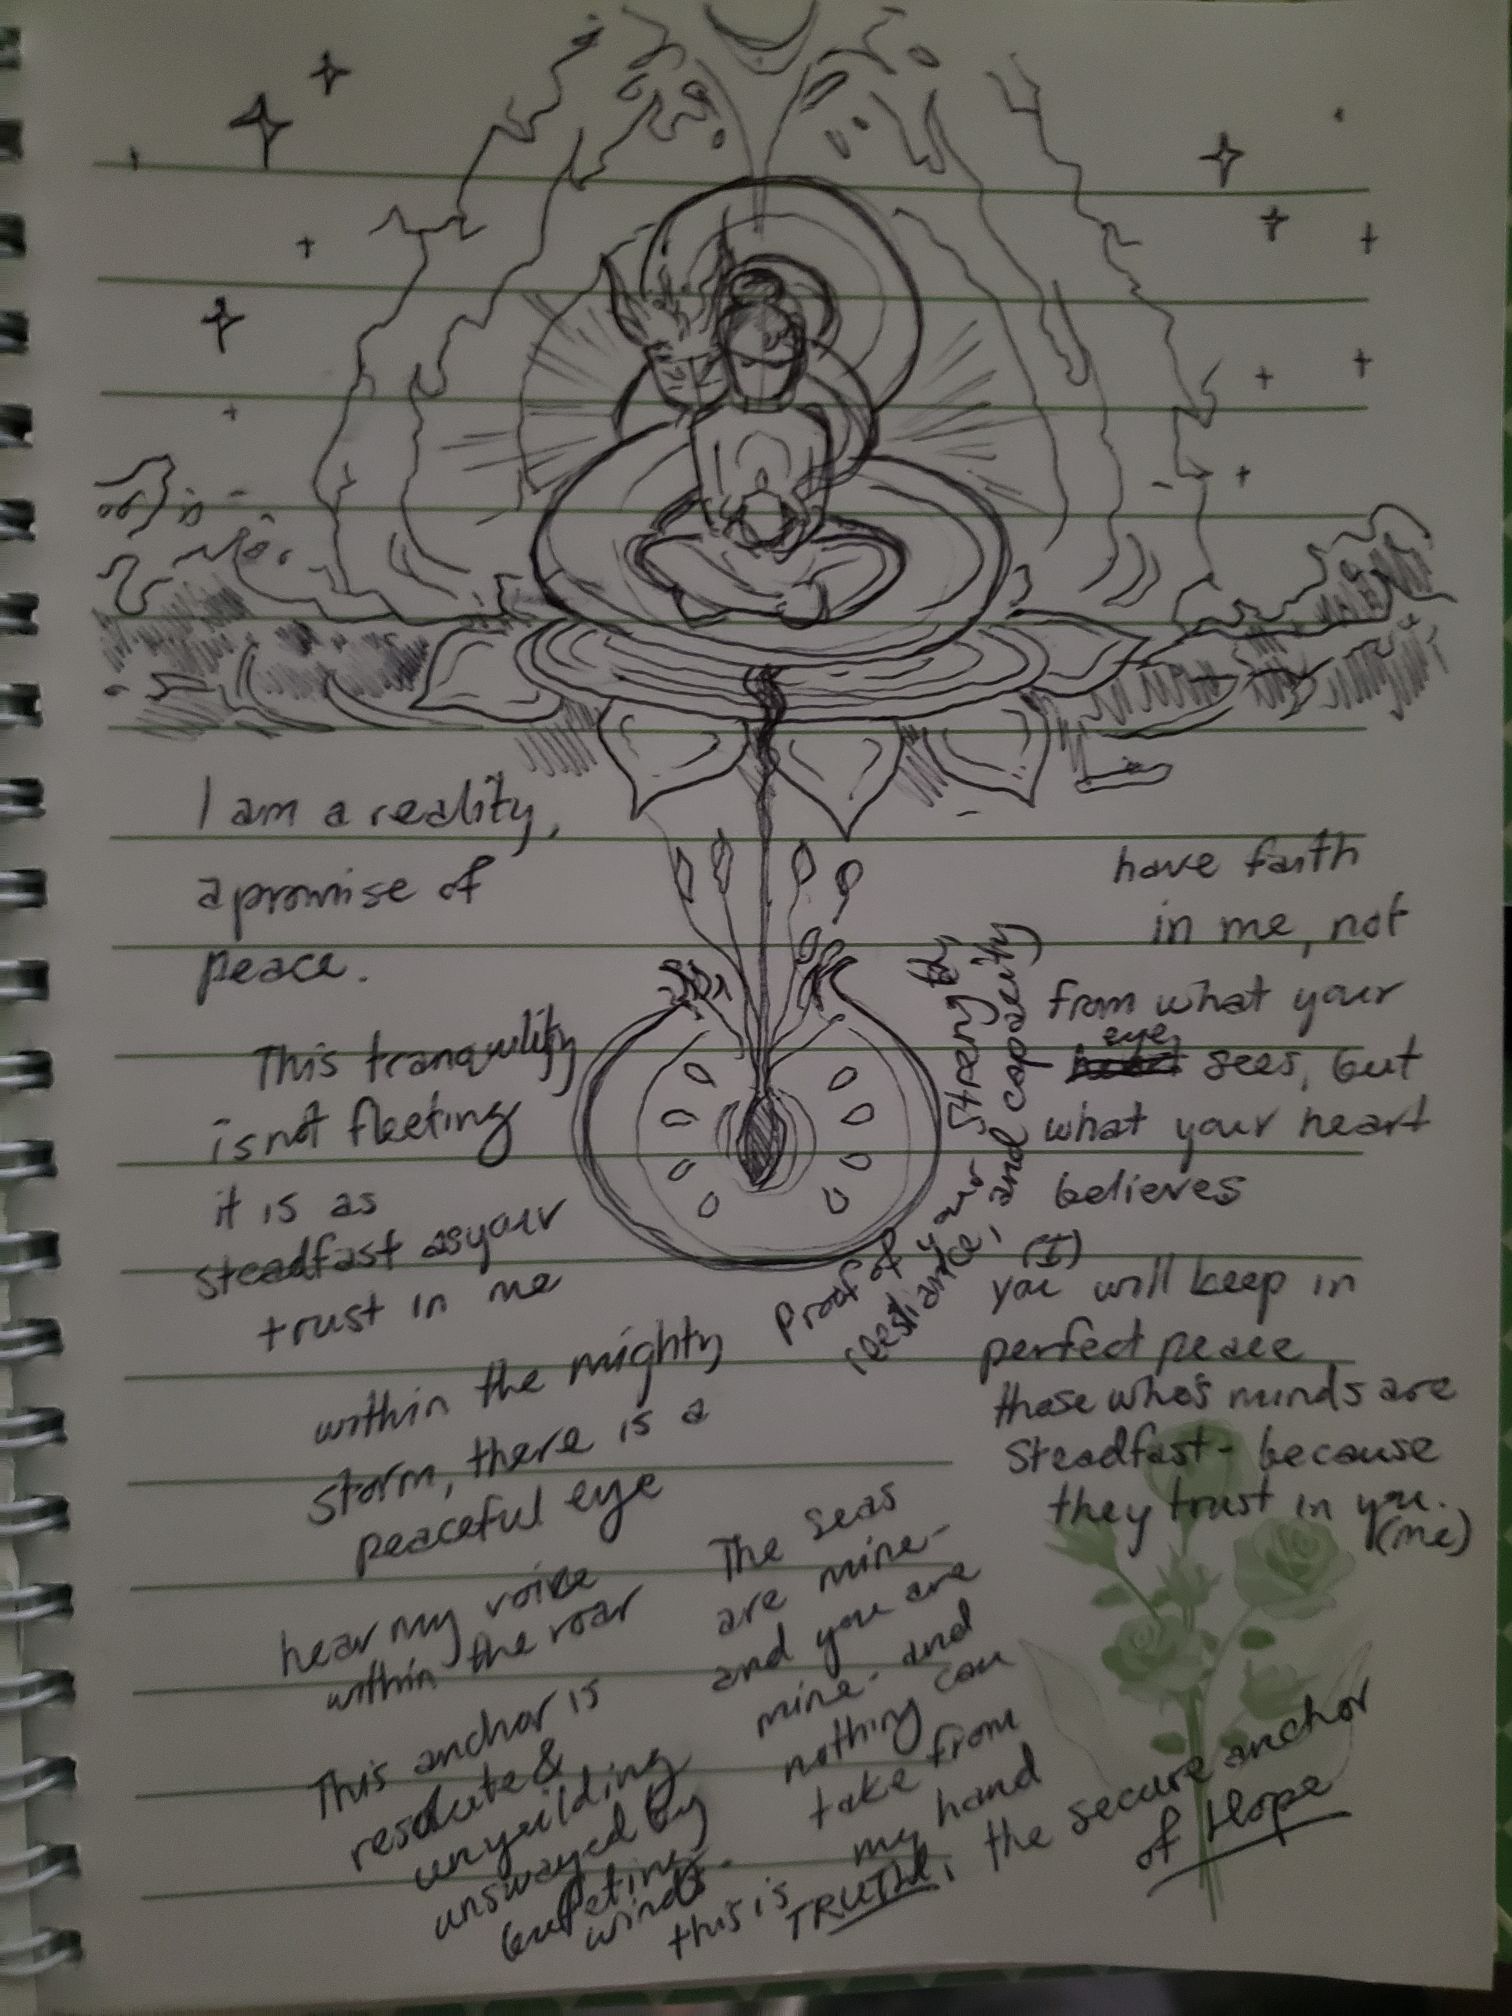 I am a reality,
a promise of
peace.
This tranquility
is not fleeting
it is as
steadfast as your
trust in me
within the mighty
storm, there is a
peaceful eye
hear my voice
within the roar
This anchor is
resolute &
unyeilding
unswayed by
buffeting
winds.
Proof of your strength,
resliance, and capacity
have faith
in me, not
from what your
eye
sees, but
what your heart
believes
(I)
you will keep in
perfect peace
those who's minds are
steadfast - because
they trust in you.
(me)
The seas
are mine -
and you are
mine - and
nothing can
take from
my hand
this is
TRUTH, the secure anchor
of Hope